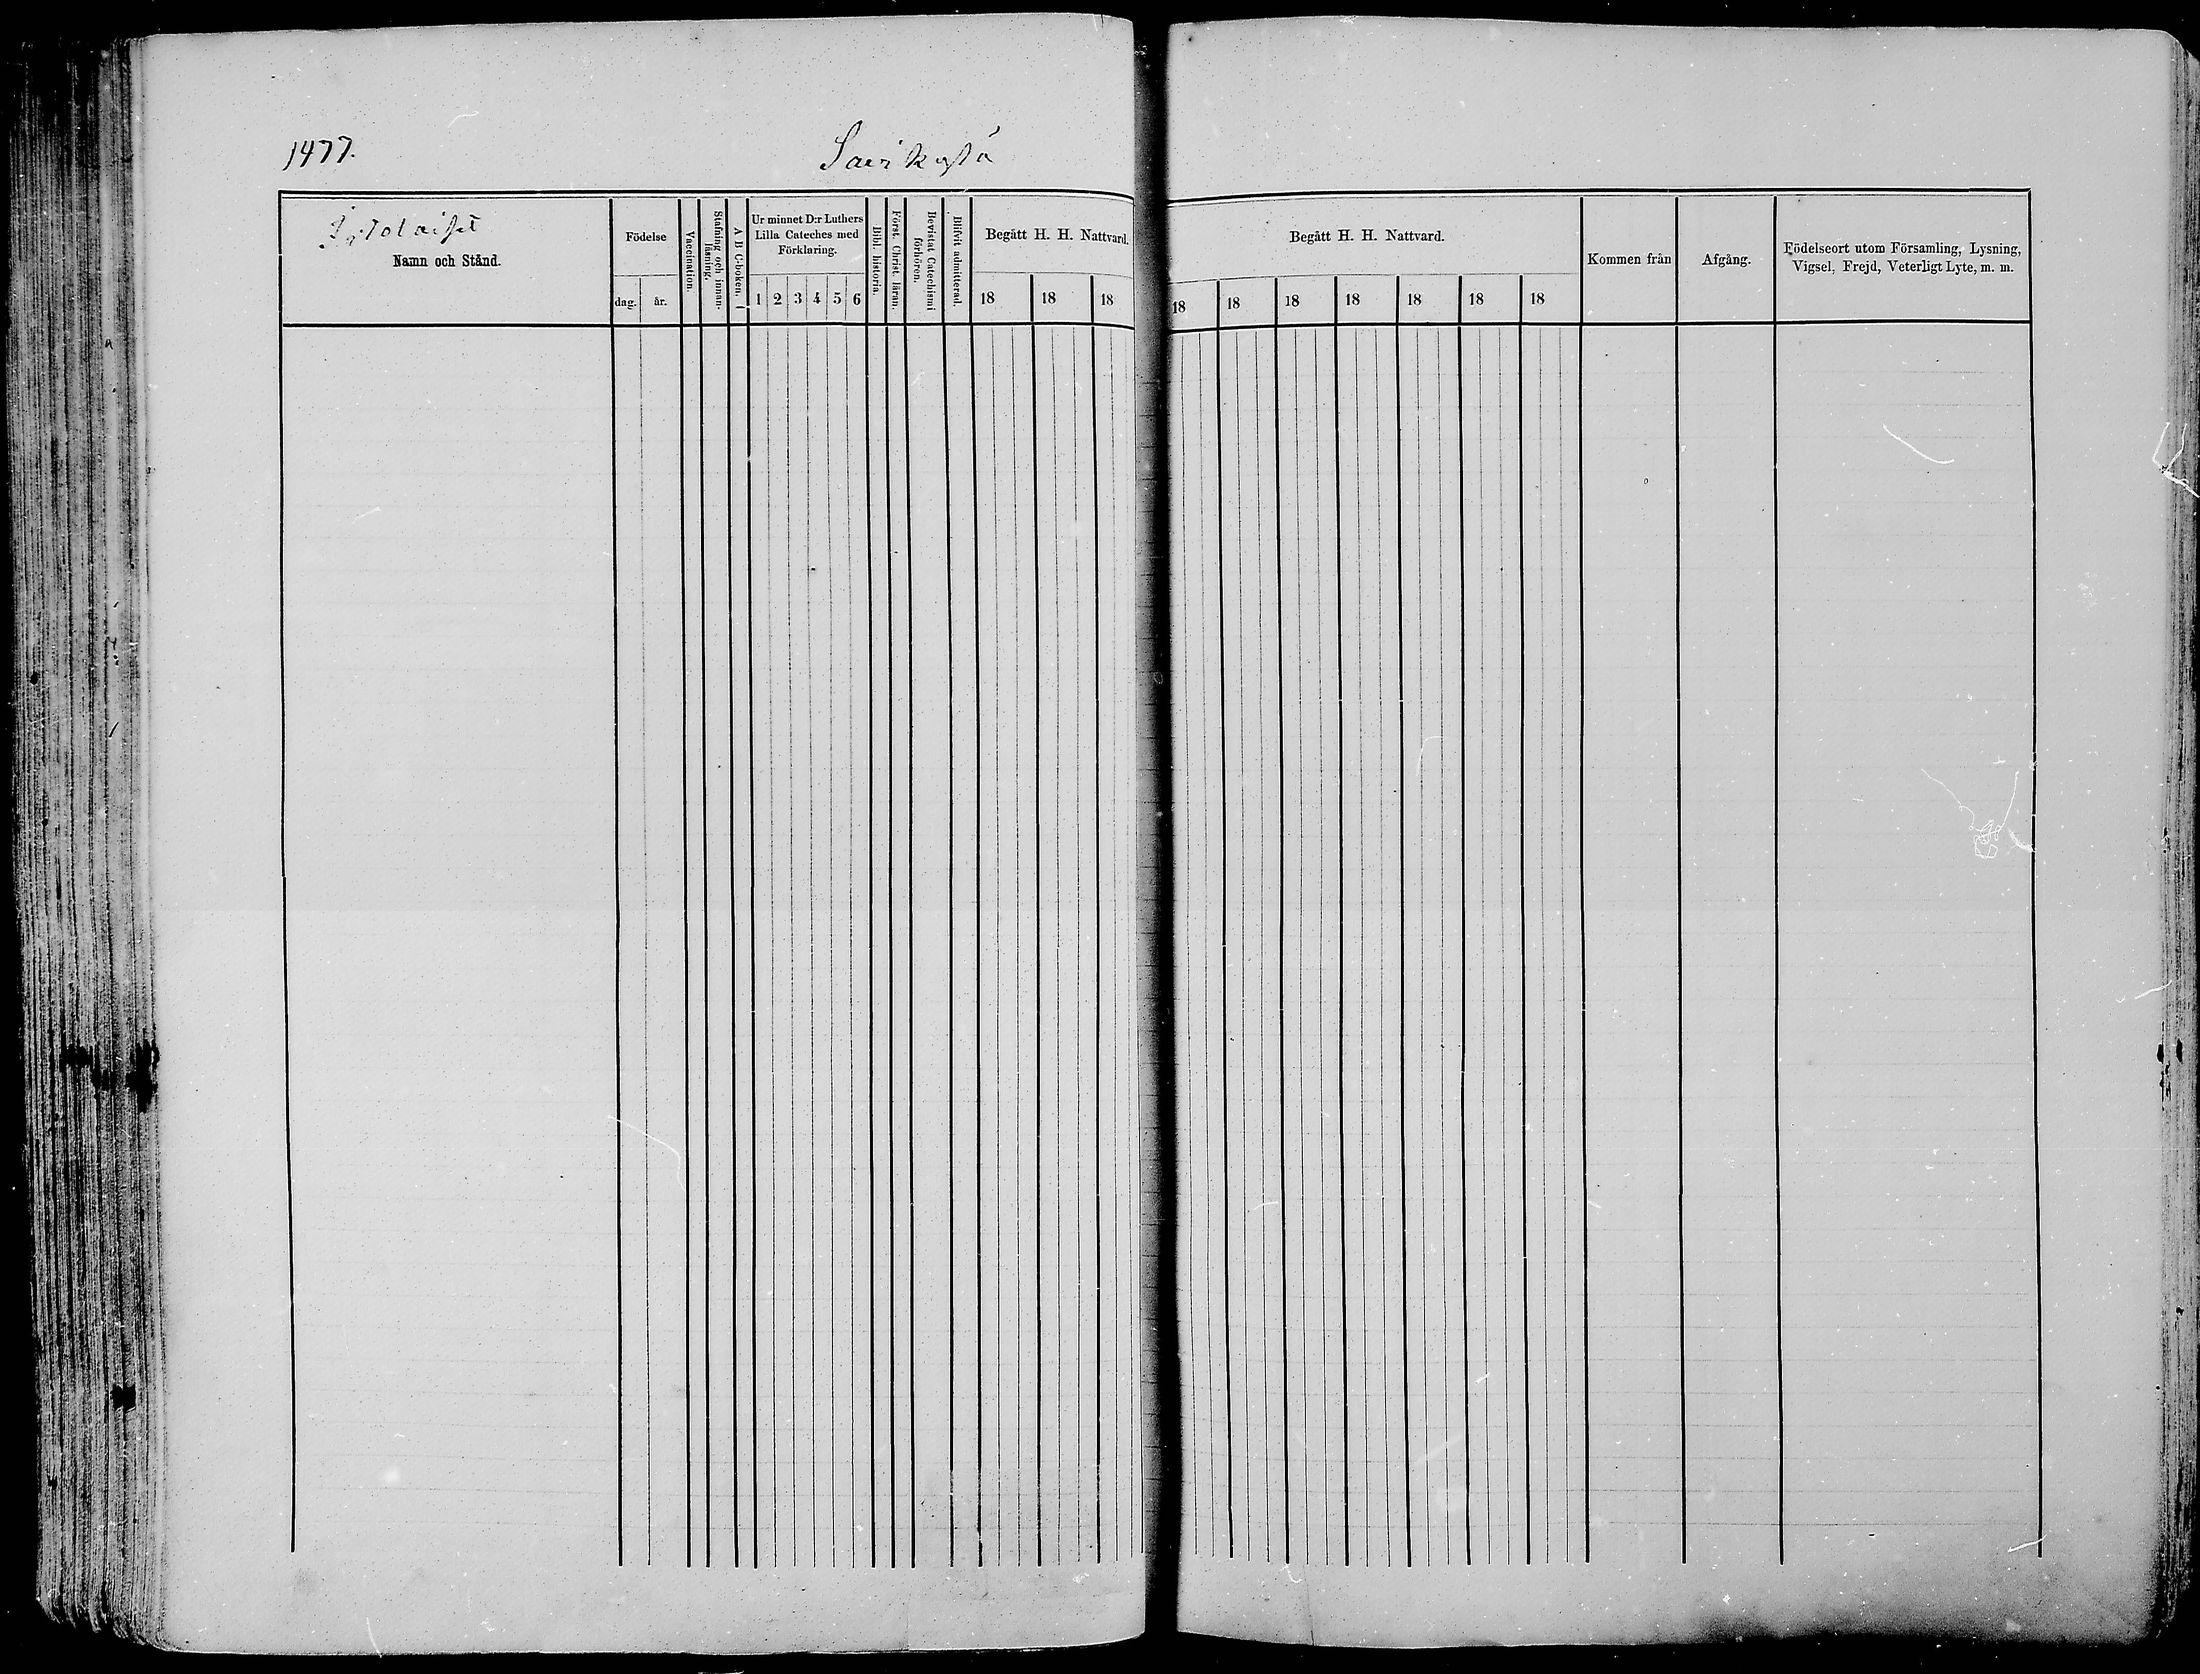 1477.
Savikylä
Itolaiset
Namn och Stånd.
Födelse
dag.
år.
Vaccination.
Stafning och innan-
läsning.
A B C-boken.
Ur minnet D:r Luthers
Lilla Cateches med
Förklaring.
1 2 3 4 5 6
Bibl. historia.
Först. Christ. läran.
Bevistat Catechismi
förhören.
Blifvit admitterad.
Begått H. H. Nattvard.
18 18 18
Begått H. H. Nattvard.
18 18 18 18 18 18 18
Kommen från
Afgång.
Födelseort utom Församling, Lysning,
Vigsel, Frejd, Veterligt Lyte, m. m.